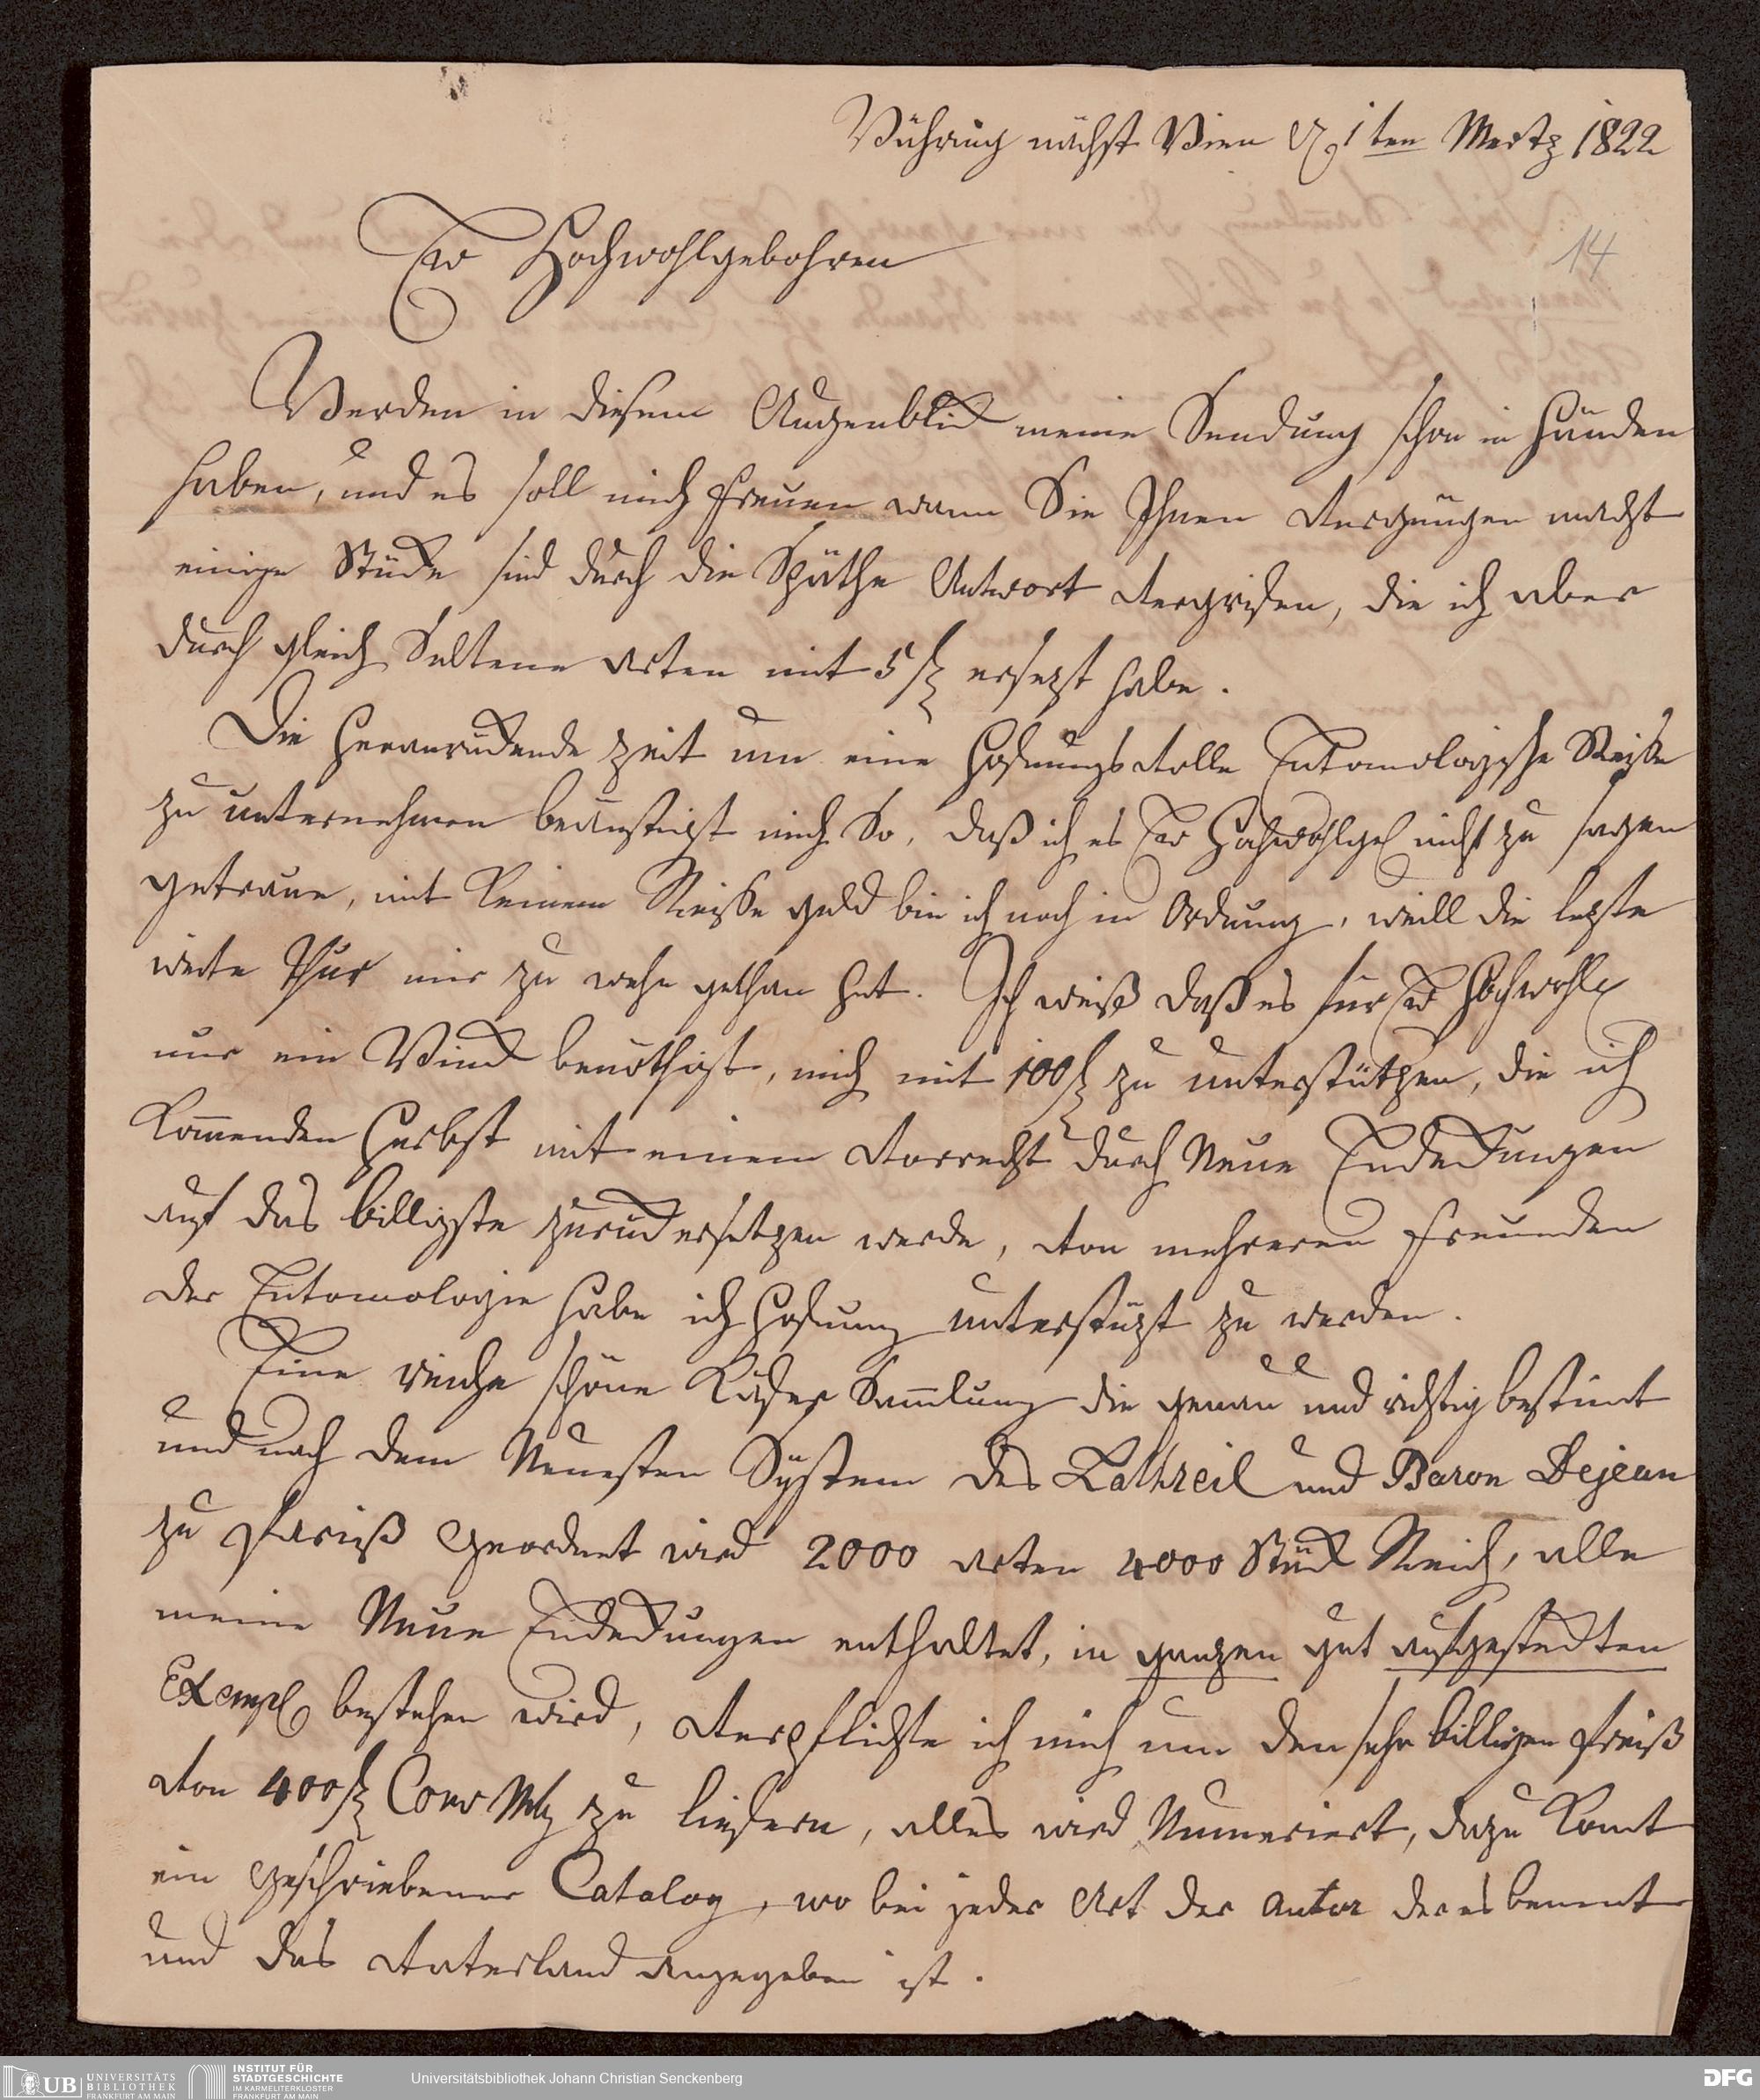 Währing nächst Wien d 1ten Mertz 1822
14
Euer Hochwohlgebohren
Werden in diesem Augenblick meine Sendung schon in Händen
haben, und es soll mich freuen wenn Sie Ihnen Vergnügen macht
einige Stücke sind durch die Späthe Antwort vergrifen, die ich aber
durch gleich Seltene Arten mit 5 f ersezt habe.
Die Heranrückende zeit um eine Hofnungsvolle Entomologische Reise
zu unternehmen beängstigt mich So, daß ich es Euer Hochwohlgeb nicht zu sagen
getraue, mit Keinem Reisse geld bin ich noch in Ordnung, weill die lezte
weite Thur mir zu wehe gethan hat. Ich weiß daß es für Euer Hochwohlg
nur ein Wink benöthigt, mich mit 100 f zu unterstützen, die ich
Komenden Herbst mit einem Vorrecht durch Neue Endeckungen
auf das billigste zurückersetzen werde, von mehreren Freunden
der Entomologie habe ich Hofnung unterstüzt zu werden.
Eine reiche schöne Käfer Samlung die genau und richtig bestimt
und nach dem Neuesten Sÿstem des Lathreil und Baron Dejean
zu Pariß Geordnet wird 2000 Arten 4000 Stück Reich, alle
meine Neue Endeckungen enthaltet, in ganzen gut aufgesteckten
Exempl bestehen wird, Verpflichte ich mich um den sehr billigen Preiß
von 400 f Conv Mz zu liefern, alles wird Numeriert, dazu Komt
ein Geschriebener Catalog, wo bei jeder Art der Autor der es benent
und das Vaterland angegeben ist.
UB UNIVERSITÄTS
BIBLIOTHEK
FRANKFURT AM MAIN
INSTITUT FÜR
STADTGESCHICHTE
IM KARMELITERKLOSTER
FRANKFURT AM MAIN
Universitätsbibliothek Johann Christian Senckenberg
DFG